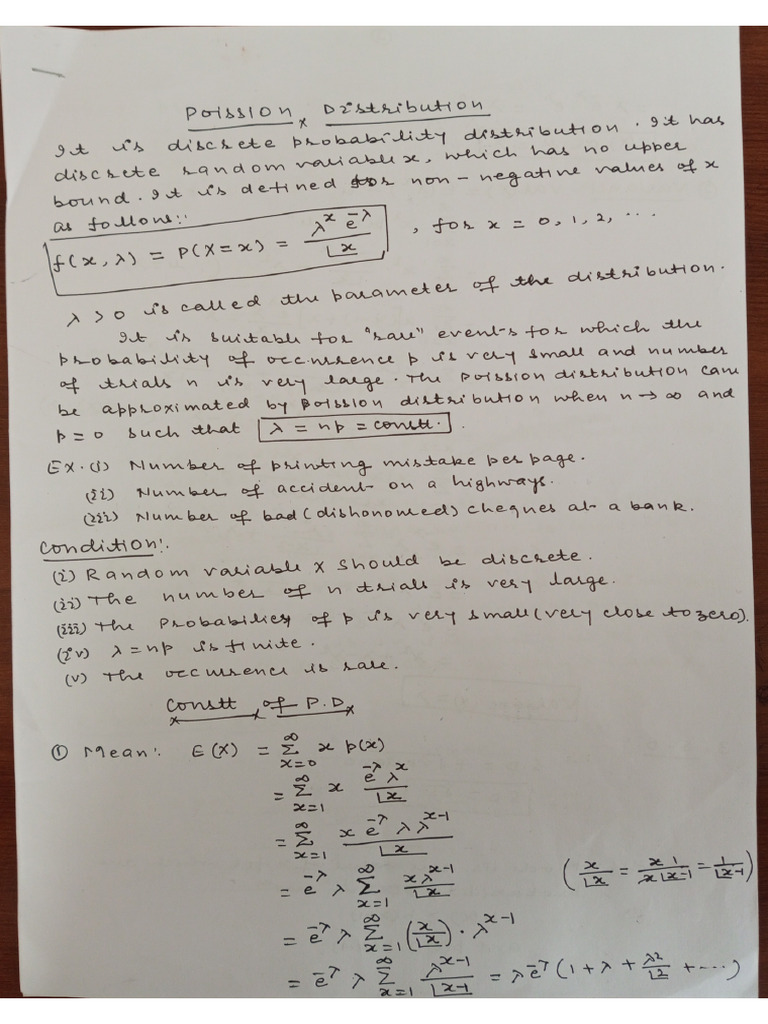 Poission Distribution
It is discrete probability distribution. It has
discrete random variable x, which has no upper
bound. It is defined for non-negative values of x
as follows:
f(x, λ) = P(X=x) = λ^x e^-λ / ⌊x , for x = 0, 1, 2, ...
λ > 0 is called the parameter of the distribution.
It is suitable for "rare" events for which the
probability of occurrence p is very small and number
of trials n is very large. The Poission distribution can
be approximated by poission distribution when n → ∞ and
p = 0 such that λ = np = constt. .
Ex. (i) Number of printing mistake per page.
(ii) Number of accident on a highways.
(iii) Number of bad (dishonomed) cheques at a bank.
Condition:
(i) Random variable X should be discrete.
(ii) The number of n trials is very large.
(iii) The Probabiliey of p is very small (very close to zero).
(iv) λ = np is finite.
(v) The occurrence is rare.
Constt of P.D
① Mean: E(X) = ∞ Σ x=0 x p(x)
= ∞ Σ x=1 x e^-λ λ^x / ⌊x
= ∞ Σ x=1 x e^-λ λ λ^x-1 / ⌊x
= e^-λ λ ∞ Σ x=1 x λ^x-1 / ⌊x ( x / ⌊x = x 1 / x ⌊x-1 = 1 / ⌊x-1 )
= e^-λ λ ∞ Σ x=1 ( x / ⌊x ) · λ^x-1
= e^-λ λ ∞ Σ x=1 λ^x-1 / ⌊x-1 = λ e^-λ ( 1 + λ + λ^2 / ⌊2 + .... )